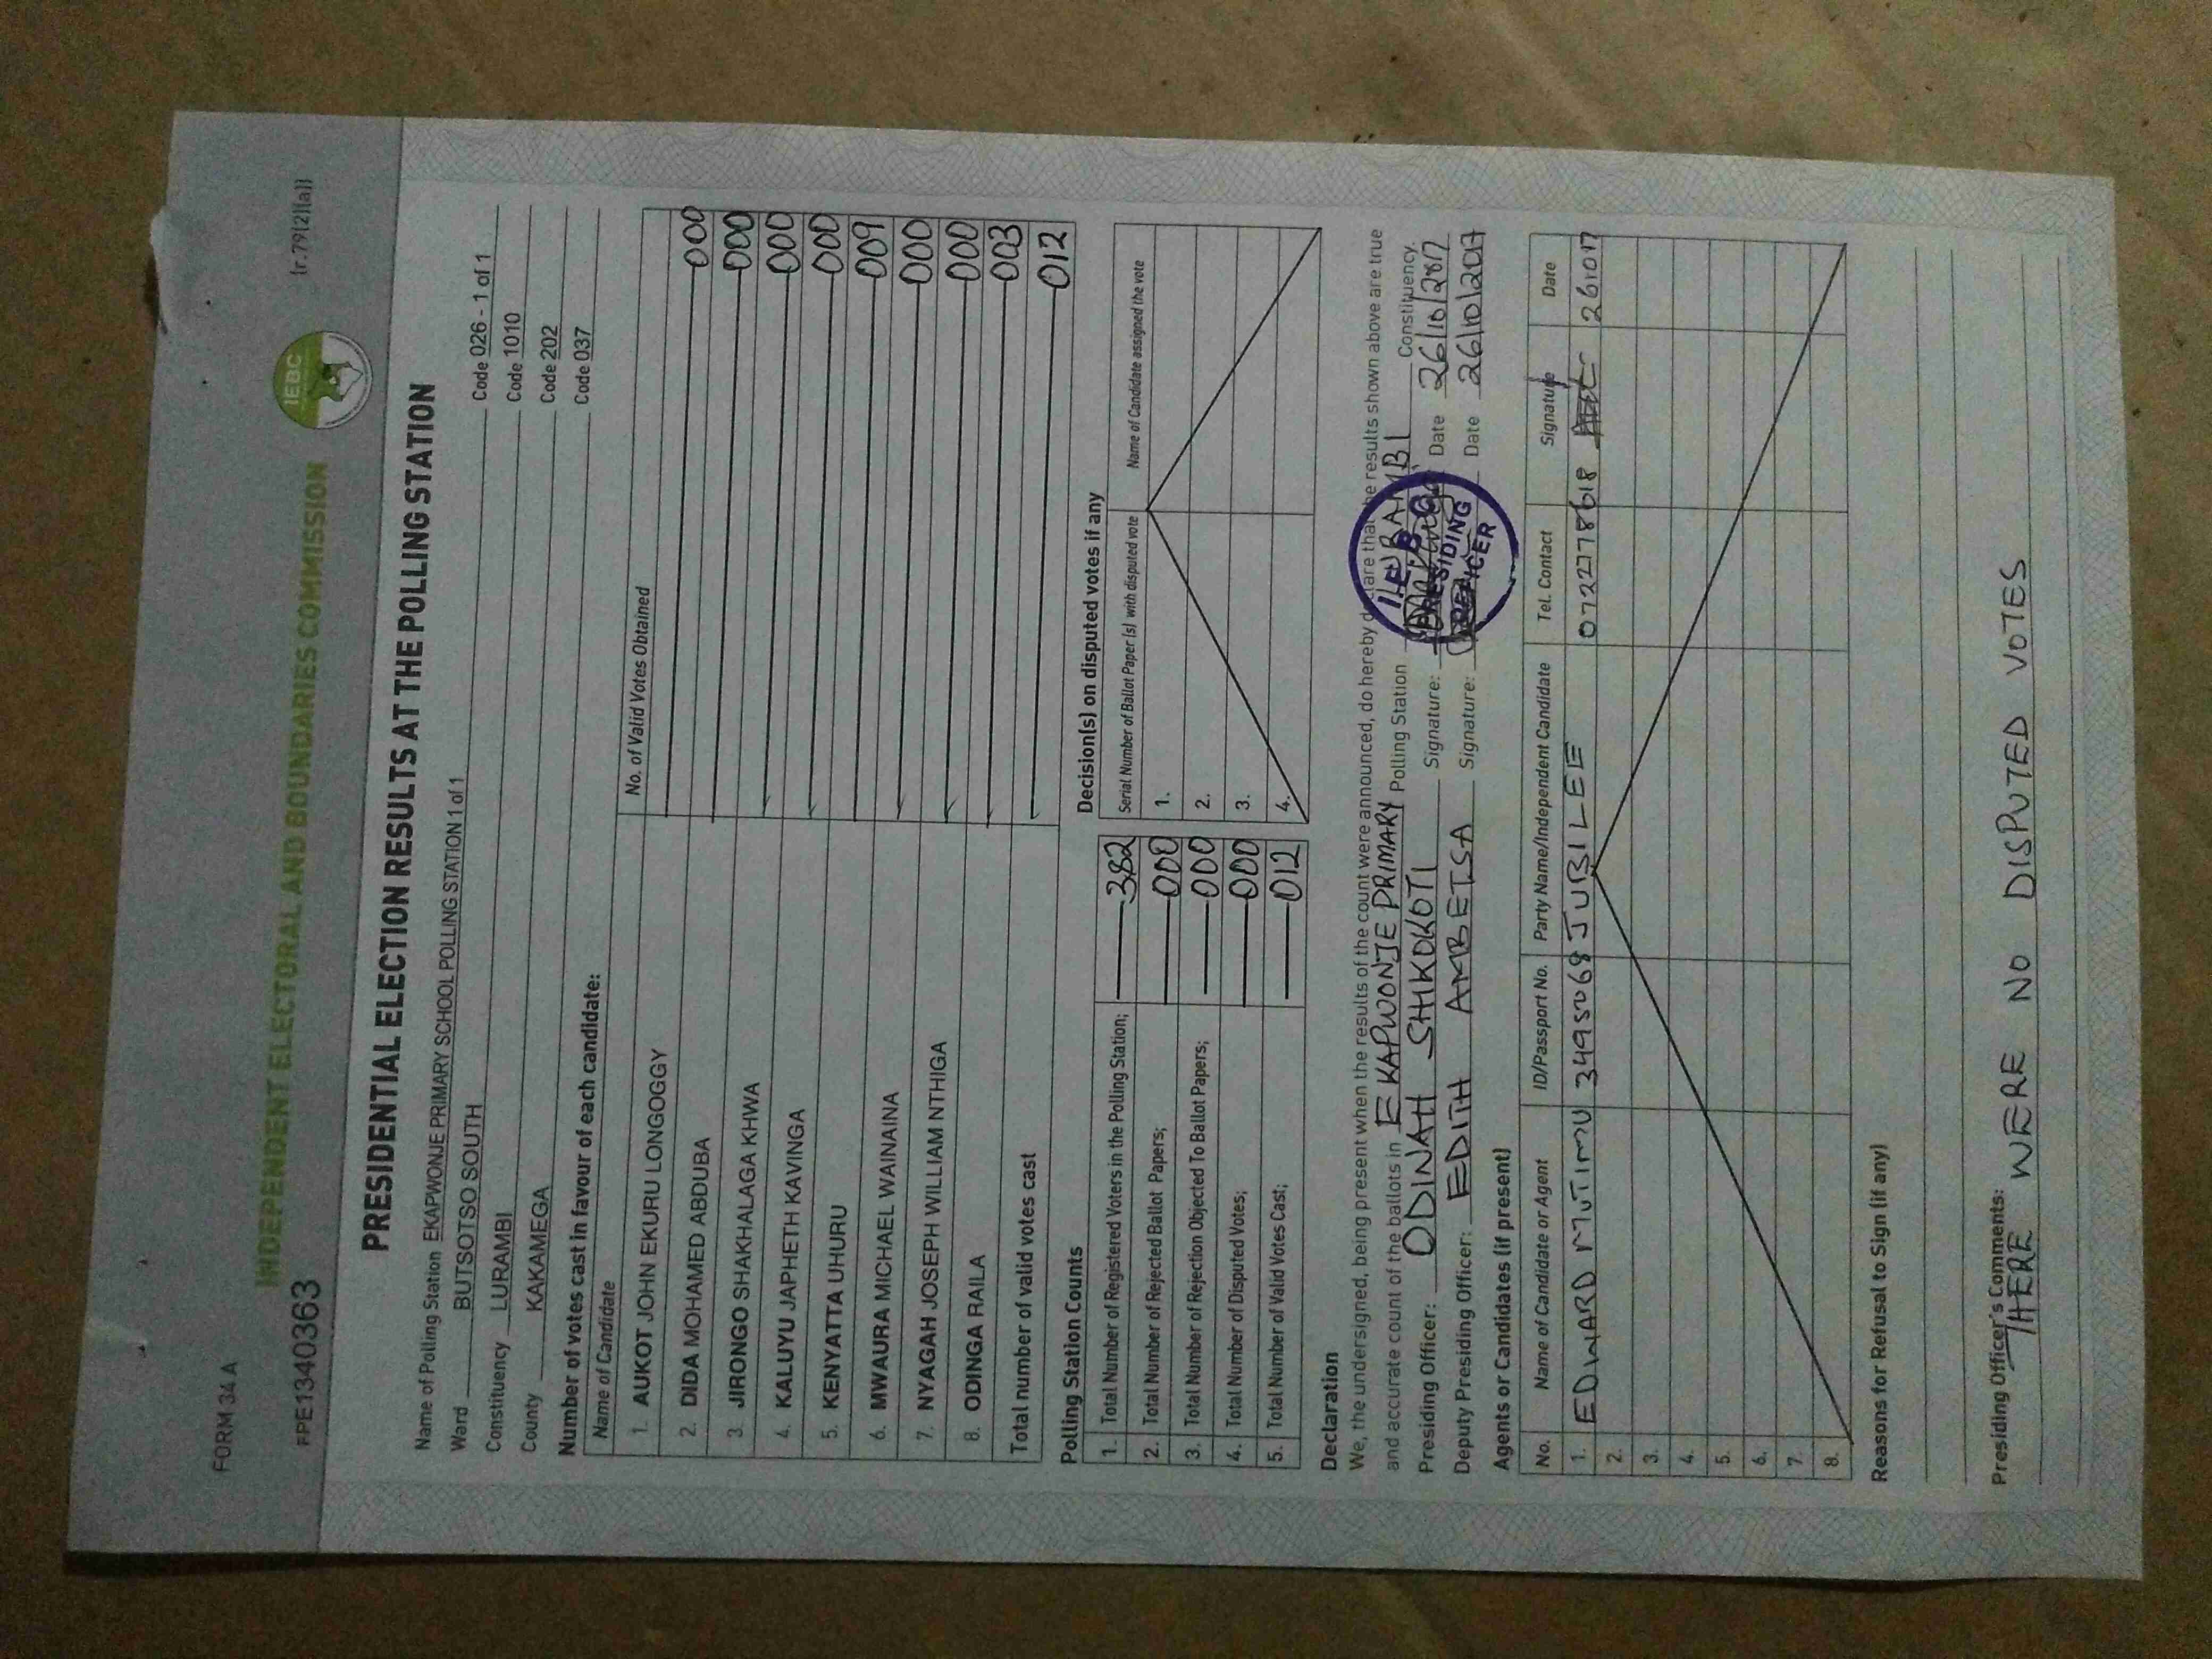 FORM 34 A
INDEPENDENT ELECTORAL AND BOUNDARIES COMMISSION
IEBC
(r.79(2)(a))
FPE1340363
PRESIDENTIAL ELECTION RESULTS AT THE POLLING STATION
Name of Polling Station EKAPWONJE PRIMARY SCHOOL POLLING STATION 1 of 1 Code 026 - 1 of 1
Ward BUTSOTSO SOUTH Code 1010
Constituency LURAMBI Code 202
County KAKAMEGA Code 037
Number of votes cast in favour of each candidate:
Name of Candidate No. of Valid Votes Obtained
1. AUKOT JOHN EKURU LONGOGGY 000
2. DIDA MOHAMED ABDUBA 000
3. JIRONGO SHAKHALAGA KHWA 000
4. KALUYU JAPHETH KAVINGA 000
5. KENYATTA UHURU 009
6. MWAURA MICHAEL WAINAINA 000
7. NYAGAH JOSEPH WILLIAM NTHIGA 000
8. ODINGA RAILA 003
Total number of valid votes cast 012
Polling Station Counts
1. Total Number of Registered Voters in the Polling Station; 382
2. Total Number of Rejected Ballot Papers; 000
3. Total Number of Rejection Objected To Ballot Papers; 000
4. Total Number of Disputed Votes; 000
5. Total Number of Valid Votes Cast; 012
Decision(s) on disputed votes if any
Serial Number of Ballot Paper (s) with disputed vote Name of Candidate assigned the vote
1.
2.
3.
4.
Declaration
We, the undersigned, being present when the results of the count were announced, do hereby declare that the results shown above are true
and accurate count of the ballots in EKAPWONJE PRIMARY Polling Station LURAMBI Constituency.
Presiding Officer: ODINAH SHIKOKOTI Signature: Date 26/10/2017
Deputy Presiding Officer: EDITH AMBETSA Signature: Date 26/10/2017
I.E.B.C.
PRESIDING
OFFICER
Agents or Candidates (if present)
No. Name of Candidate or Agent ID/Passport No. Party Name/Independent Candidate Tel. Contact Signature Date
1. EDWARD MUTIMU 3495068 JUBILEE 0722778618 261017
2.
3.
4.
5.
6.
7.
8.
Reasons for Refusal to Sign (if any)
Presiding Officer's Comments:
THERE WERE NO DISPUTED VOTES